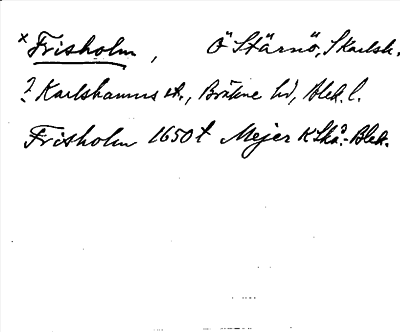 × Frisholm, Ö Stärnö, S Karlsh.
? Karlshamns st., Bräkne hd, Blek. l.
Frisholm 1650 t Mejer K Skå.-Blek.